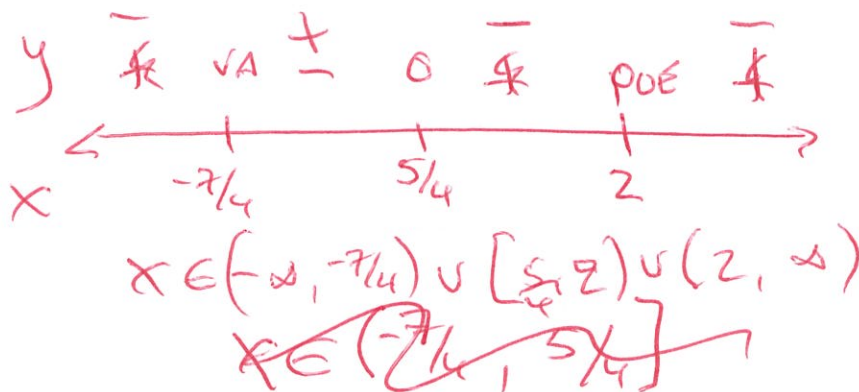 y − VA + − 0 − POE −
-7/4 5/4 2
x
x ∈ (-∞, -7/4) ∪ [5/4, 2) ∪ (2, ∞)
x ∈ (-7/4, 5/4]